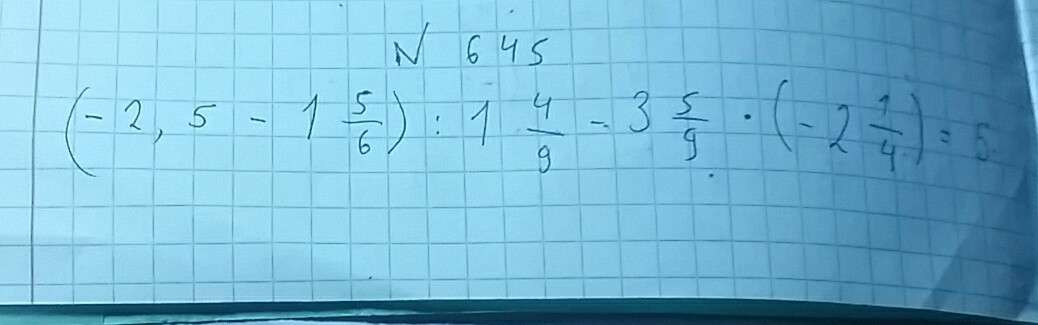 N 645
(-2,5 - 1 5/6) : 1 4/9 - 3 5/9 · (-2 1/4) = 5